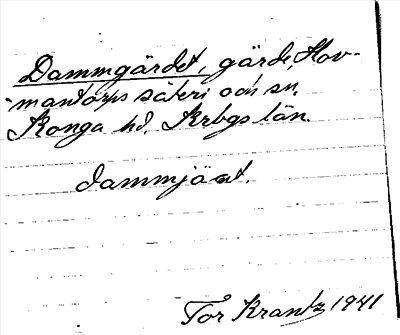 Dammgärdet, gärde, Hov-
mantorps säteri och sn,
Konga hd, Krbgs län.
dammjäat.
Tor Krantz 1941